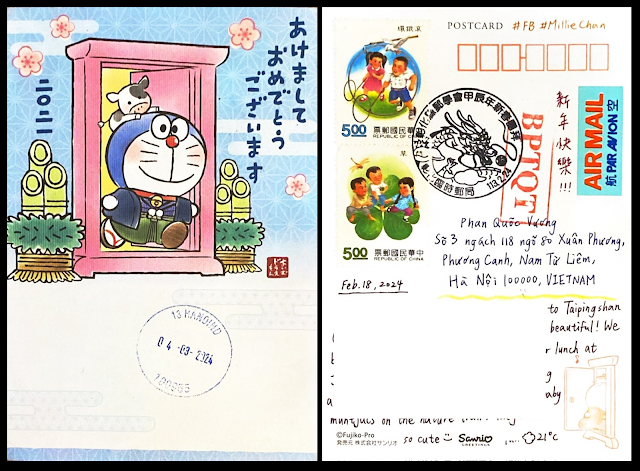 あけまして
おめでとう
ございます
二〇二一
13 HANOI HD
04-03-2024
POSTCARD #FB #MillieChan
環鐵滾
5.00
票郵國民華中
REPUBLIC OF CHINA
草
5.00
票郵國民華中
REPUBLIC OF CHINA
113.2.24
臨時郵局
BPTQT
新年快樂!!!
AIR MAIL
航空 PAR AVION
Phan Quốc Vương
Số 3 ngách 118 ngõ 80 Xuân Phương,
Phương Canh, Nam Từ Liêm,
Hà Nội 100000, VIETNAM
Feb.18, 2024
to Taipingshan
beautiful! We
r lunch at
g
aby
a
muntjacs on the nature trail. They
so cute
21°C
©Fujiko-Pro
発売元 株式会社サンリオ
Sanrio